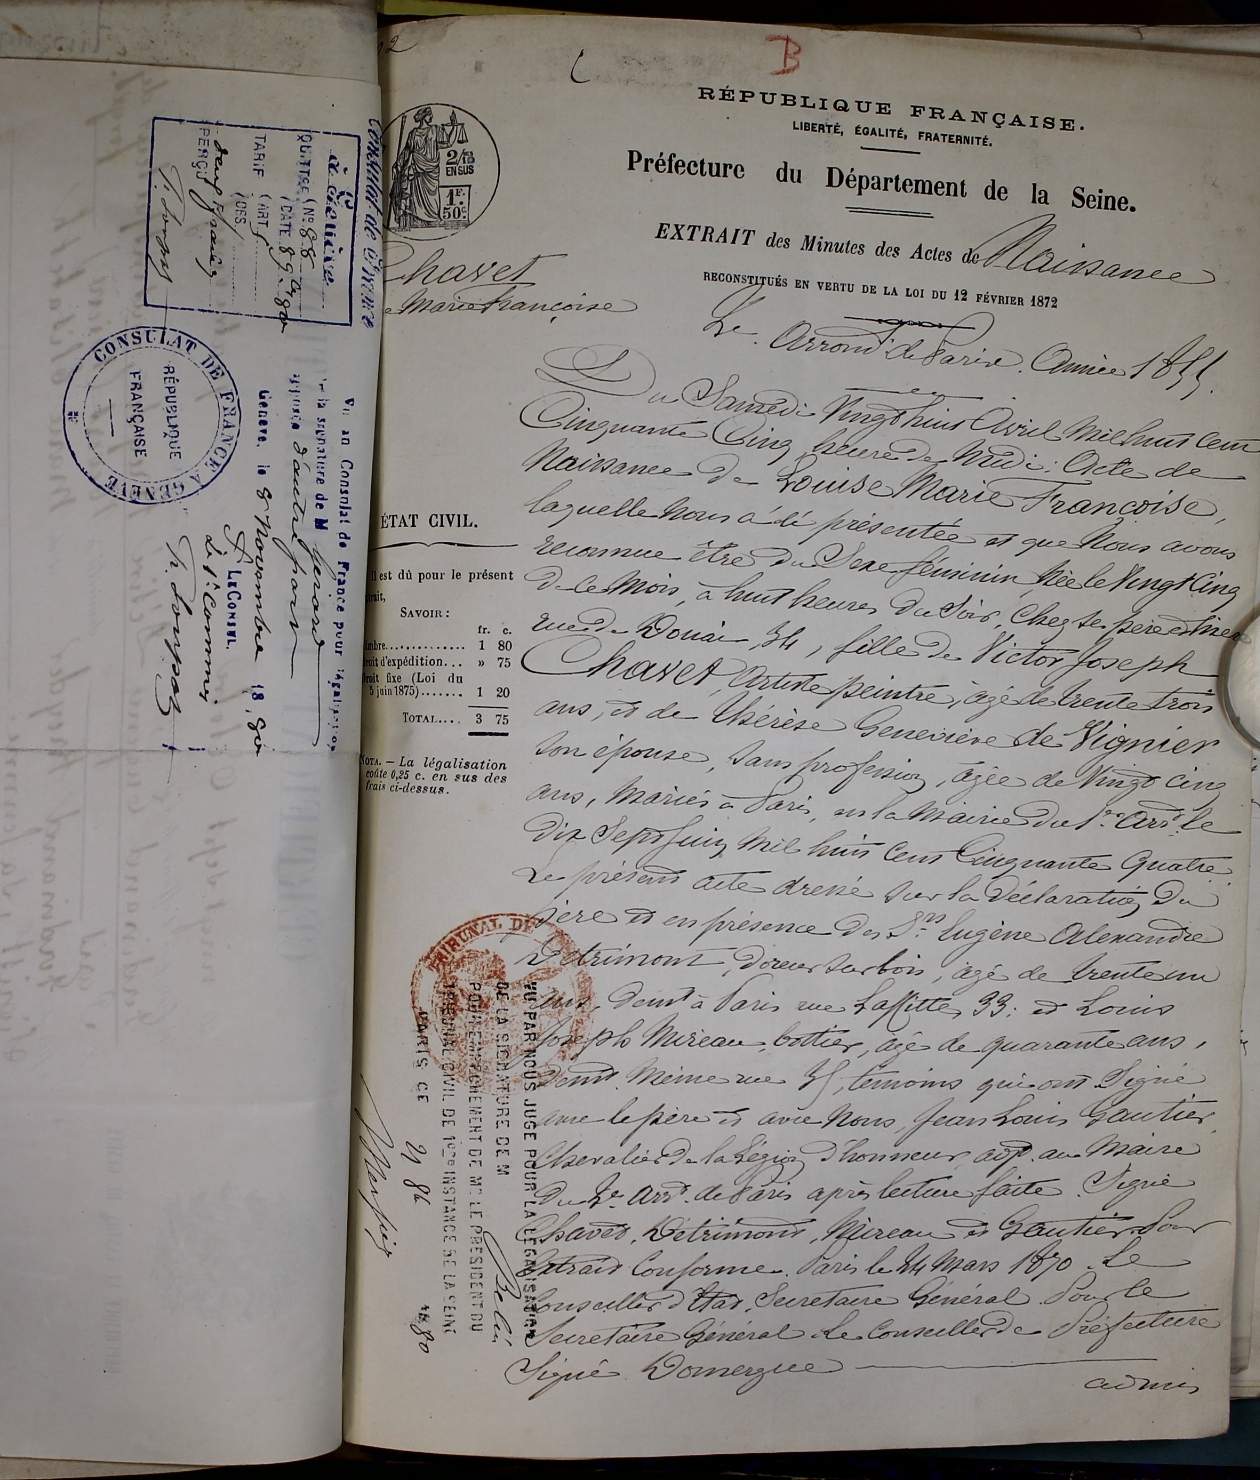 B
RÉPUBLIQUE FRANÇAISE.
LIBERTÉ, ÉGALITÉ, FRATERNITÉ.
Préfecture du Département de la Seine.
EXTRAIT des Minutes des Actes de Naissance
RECONSTITUÉS EN VERTU DE LA LOI DU 12 FÉVRIER 1872
2e Arrondt de Paris. Année 1855.
2/10
EN SUS
1F.
50c.
Chavet
Marie Françoise
Du Samedi Vingt huit Avril Mil huit cent
Cinquante Cinq, heure de Midi: Acte de
Naissance de Louise Marie Françoise,
laquelle Nous a été présentée et que Nous avons
reconnue être du Sexe féminin, Née le Vingt Cinq
de ce Mois, à huit heures du Soir, Chez Se père et mère
rue de Douai, 34, fille de Victor Joseph
Chavet, Artiste peintre, âgé de trente trois
ans, et de Thérèse Geneviève de Vignier
son épouse, sans profession, âgée de Vingt cinq
ans, Mariés à Paris, en la Mairie du 1er Ardt le
dix Sept Juin Mil huit Cent Cinquante Quatre
Le présent acte dressé sur la Déclaration du
père et en présence des Srs Eugène Alexandre
Détrimont, doreur sur bois, âgé de trente un
ans, demt à Paris rue Laffitte, 33: et Louis
Joseph Mireau, bottier, âgé de quarante ans,
demt Même rue 35, témoins qui ont Signé
avec le père et avec Nous, Jean Louis Gautier,
Chevalier de la Légion d'honneur, adjt au Maire
du 2e Arrt de Paris après lecture faite. Signé
Chavet, Détrimont, Mireau et Gautier. Pour
Extrait Conforme. Paris le 24 Mars 1870. Le
Conseiller d'Etat, Secrétaire Général. Pour le
Secrétaire Général. Le Conseiller de Préfecture
Signé Domergue
admis
ÉTAT CIVIL.
Il est dû pour le présent
SAVOIR:
fr. c.
1 80
d'expédition... » 75
fixe (Loi du
juin 1875)....... 1 20
TOTAL.... 3 75
NOTA. — La légalisation
coûte 0,25 c. en sus des
frais ci-dessus.
TRIBUNAL DE
VU PAR NOUS JUGE POUR LA LÉGALISATION
DE LA SIGNATURE DE M
POUR EMPÊCHEMENT DE MR LE PRÉSIDENT DU
TRIBUNAL CIVIL DE 1ère INSTANCE DE LA SEINE
PARIS CE
80
Consulat de France
à Genève
QUITTCE (No 88
(DATE 8 9bre 80
TARIF (ART
(OBS
PERÇU
CONSULAT DE FRANCE A GENÈVE
RÉPUBLIQUE
FRANÇAISE
Vu au Consulat de France pour légalisation
de la signature de M Girard
apposée d'autre part
Genève, le 8 Novembre 1880
Pr LE CONSUL,
Le 1er Commis